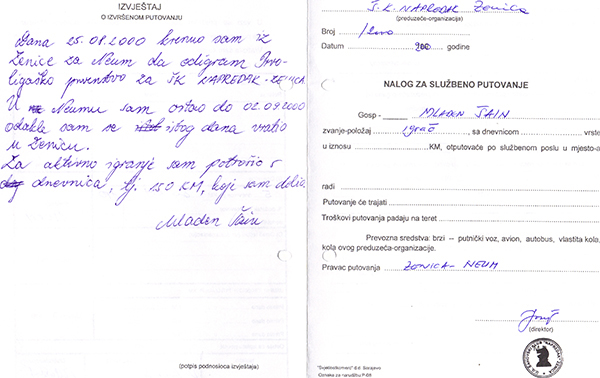 IZVJEŠTAJ
O IZVRŠENOM PUTOVANJU
Dana 25.08.2000 krenuo sam iz
Zenice za Neum da odigram Prvo-
ligaško prvenstvo za ŠK NAPREDAK-ZENICA
U Neumu sam ostao do 02.09.2000
odakle sam se istog dana vratio
u Zenicu.
Za aktivno igranje sam potrošio 5
dnevnica, tj. 150 KM, koji sam dobio
Mladen Šain
(potpis podnosioca izvještaja)
Š.K. NAPREDAK Zenica
(preduzeće-organizacija)
Broj
Datum 200 godine
NALOG ZA SLUŽBENO PUTOVANJE
Gosp. MLADEN ŠAIN
zvanje-položaj igrač sa dnevnicom vrste
u iznosu KM, otputovaće po službenom poslu u mjesto-a
radi
Putovanje će trajati
Troškovi putovanja padaju na teret
Prevozna sredstva: brzi – putnički voz, avion, autobus, vlastita kola,
kola ovog preduzeća-organizacije.
Pravac putovanja ZENICA-NEUM
(direktor)
"Svjetlostkomerc" d.d. Sarajevo
Oznaka za narudžbu P-68